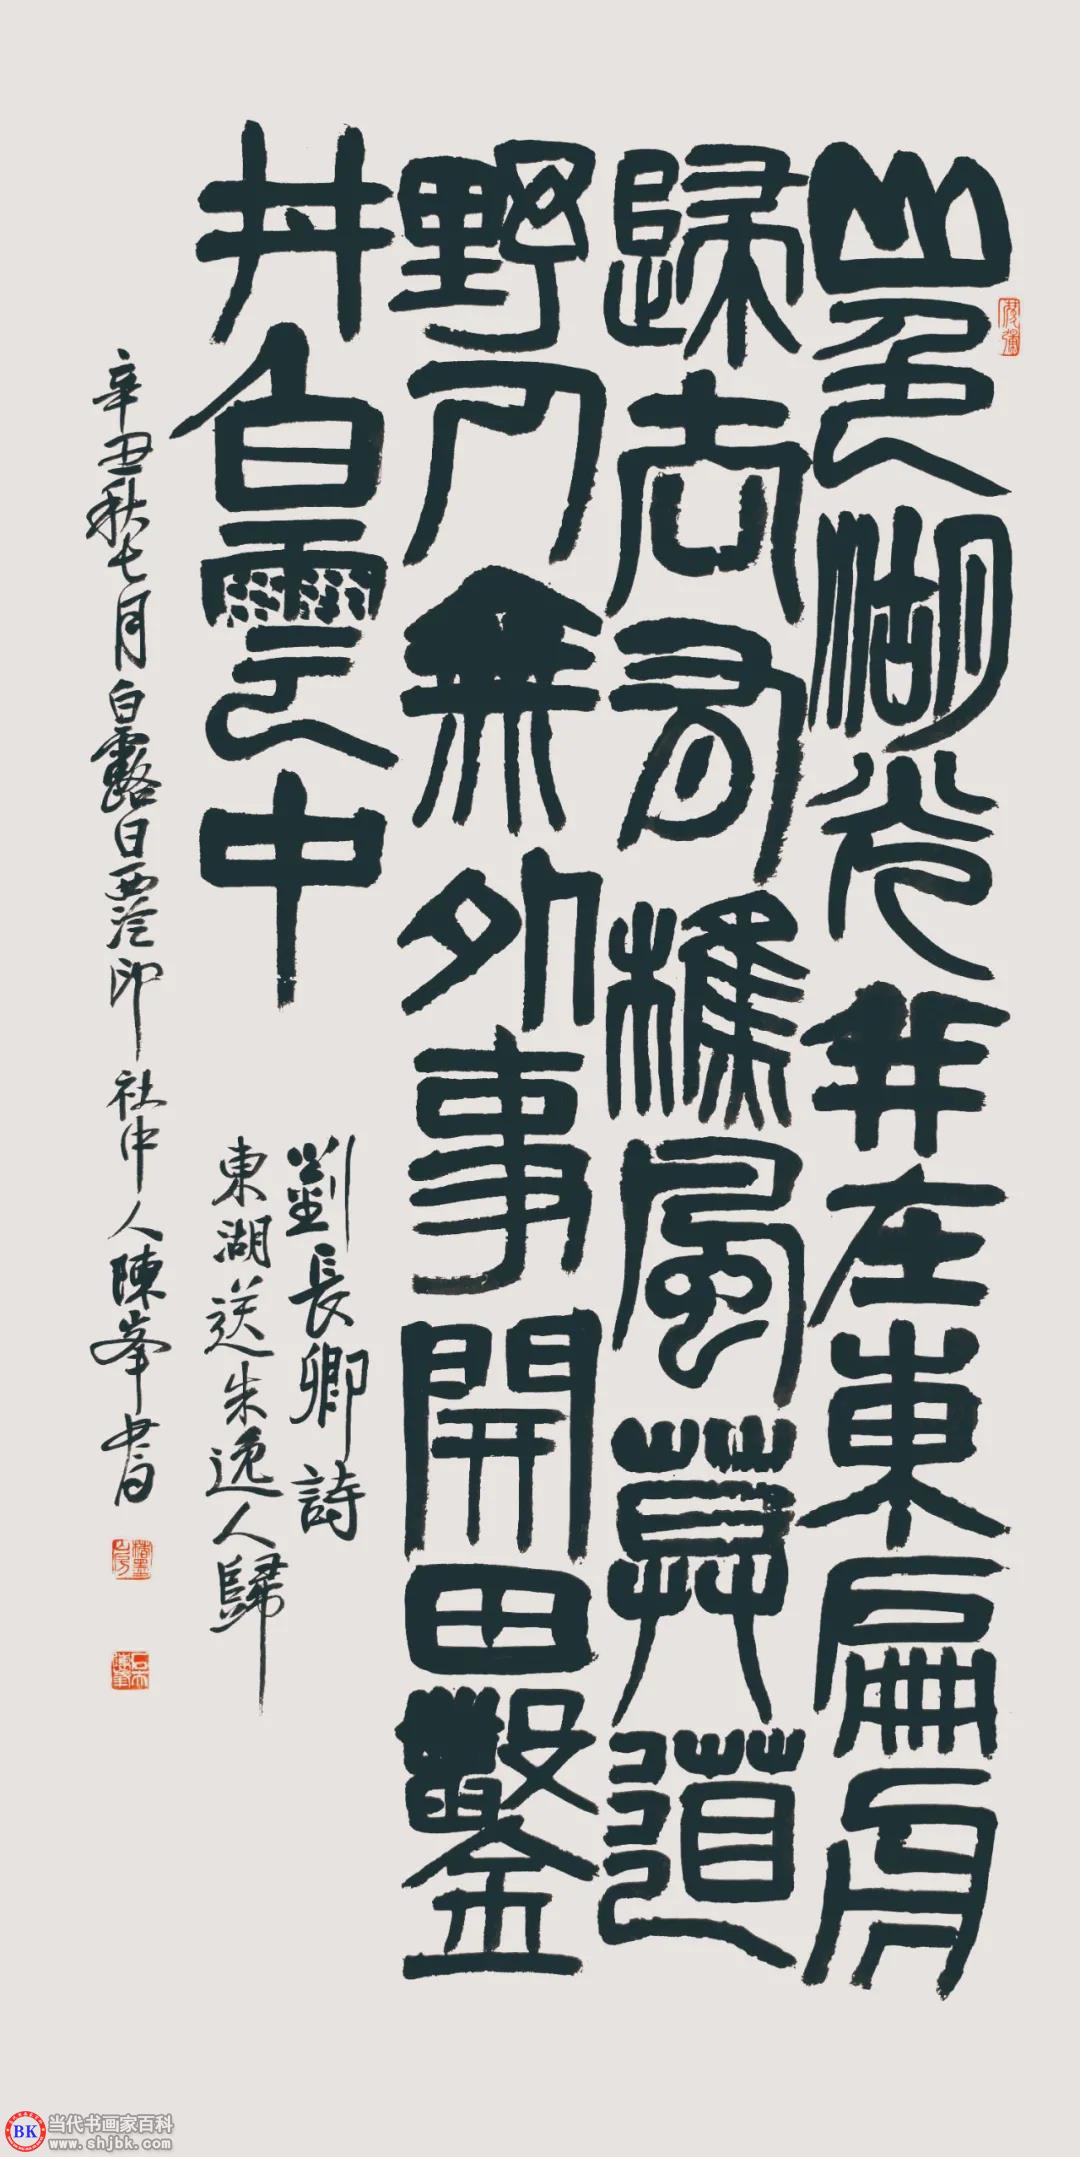 山色湖光并在東扁舟
歸去有樵風莫道
野人無外事開田鑿
井白雲中
劉長卿詩
東湖送朱逸人歸
辛丑秋七月白露日西泠印社中人陳峯書
BK
当代书画家百科
www.shjbk.com